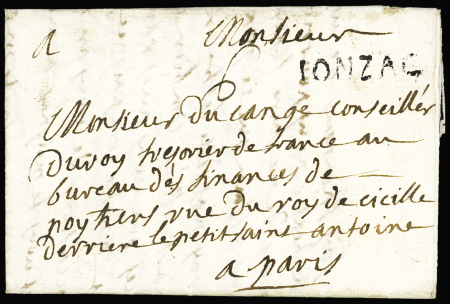 a Monsieur
6
IONZAC
Monsieur Ducange conseillér
Duroy tresorier de france au
bureau dés finances de
poytiers rue du roy de cicille
derriere le petit saint antoine
a paris